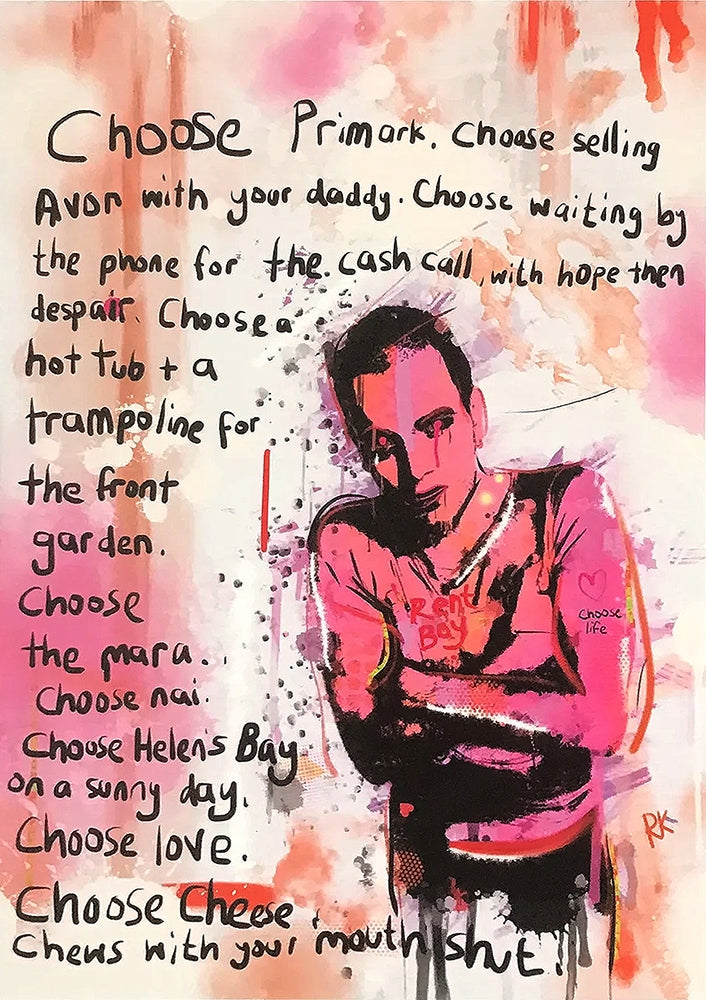 Choose Primark. Choose selling
Avon with your daddy. Choose waiting by
the phone for the. cash call, with hope then
despair. Choose a
hot tub + a
trampoline for
the front
garden.
Choose
the mara..
Choose nai.
Choose Helen's Bay
on a sunny day.
Choose love.
Choose Cheese.
Chews with your mouth shut.
Rent
Boy
choose
life
RK